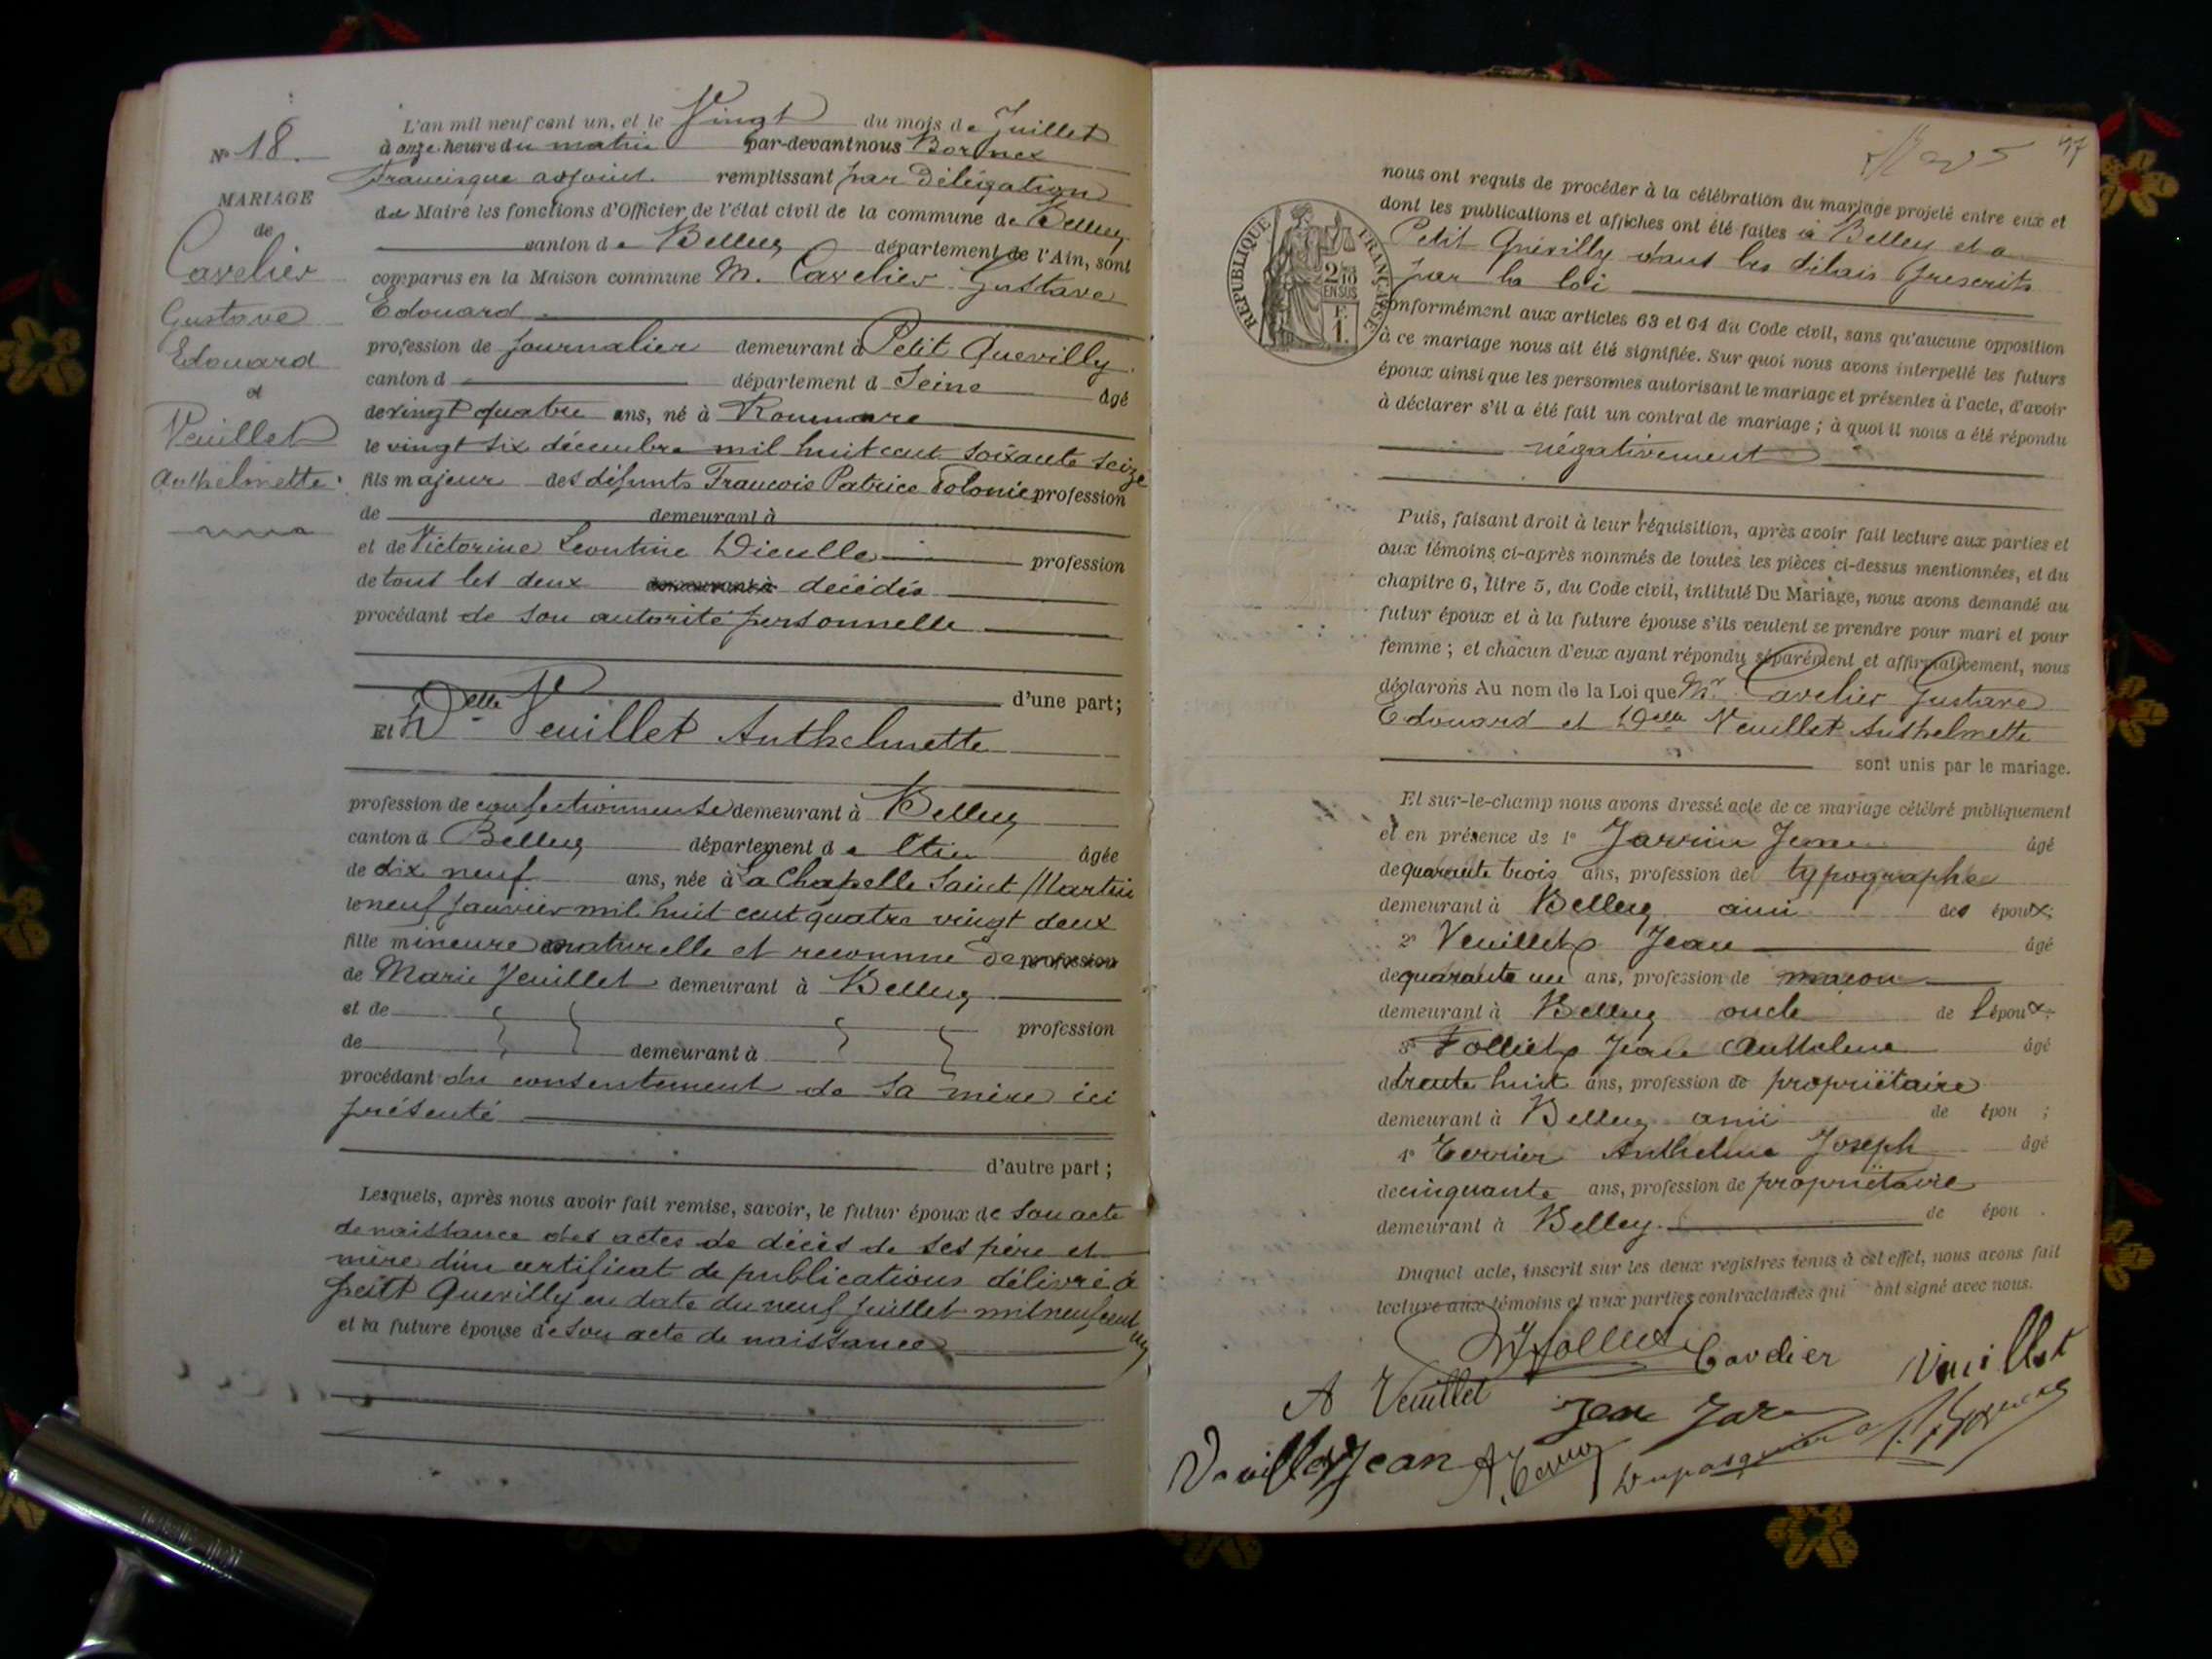 N° 18.
MARIAGE
de
Cavelier
Gustave
Edouard
et
Veuillet
Anthelmette
L'an mil neuf cent un, et le Vingt du mois de Juillet
à onze heure du matin par-devant nous Bornex
Francisque adjoint remplissant par Délégation
du Maire les fonctions d'Officier de l'état civil de la commune de Belley
canton de Belley département de l'Ain, sont
comparus en la Maison commune M. Cavelier Gustave
Edouard
profession de journalier demeurant à Petit Quevilly
canton d département d Seine âgé
de vingt quatre ans, né à Roumare
le vingt six décembre mil huit cent soixante seize
fils majeur des défunts Francois Patrice Polonie profession
de demeurant à
et de Victorine Leontine Dieulle profession
de tous les deux demeurant à décédés
procédant de son autorité personnelle
d'une part;
Et Delle Veuillet Anthelmette
profession de confectionneuse demeurant à Belley
canton d Belley département de l'Ain âgée
de dix neuf ans, née à La Chapelle Saint Martin
le neuf janvier mil huit cent quatre vingt deux
fille mineure naturelle et reconnue de profession
de Marie Veuillet demeurant à Belley
et de profession
de demeurant à
procédant du consentement de sa mère ici
présenté
d'autre part;
Lesquels, après nous avoir fait remise, savoir, le futur époux de son acte
de naissance des actes de décès de ses père et
mère d'un certificat de publications délivré à
petit Quevilly en date du neuf juillet mil neuf cent un
et la future épouse de son acte de naissance
57
nous ont requis de procéder à la célébration du mariage projeté entre eux et
dont les publications et affiches ont été faites à Belley et a
Petit Quévilly dans les délais prescrits
par la loi
conformément aux articles 63 et 64 du Code civil, sans qu'aucune opposition
à ce mariage nous ait été signifiée. Sur quoi nous avons interpellé les futurs
époux ainsi que les personnes autorisant le mariage et présentes à l'acte, d'avoir
à déclarer s'il a été fait un contrat de mariage; à quoi il nous a été répondu
négativement
RÉPUBLIQUE FRANÇAISE
2/10
EN SUS
F.
1.
Puis, faisant droit à leur réquisition, après avoir fait lecture aux parties et
aux témoins ci-après nommés de toutes les pièces ci-dessus mentionnées, et du
chapitre 6, titre 5, du Code civil, intitulé Du Mariage, nous avons demandé au
futur époux et à la future épouse s'ils veulent se prendre pour mari et pour
femme; et chacun d'eux ayant répondu séparément et affirmativement, nous
déclarons Au nom de la Loi que Mr Cavelier Gustave
Edouard et Delle Veuillet Anthelmette
sont unis par le mariage.
Et sur-le-champ nous avons dressé acte de ce mariage célébré publiquement
et en présence de 1° Jarrin Jean âgé
de quarante trois ans, profession de typographe
demeurant à Belley ami des époux;
2° Veuillet Jean âgé
de quarante un ans, profession de macon
demeurant à Belley oncle de l'époux;
3° Folliet Jean Anthelme âgé
de trente huit ans, profession de propriétaire
demeurant à Belley ami de épou ;
4° Terrier Anthelme Joseph âgé
de cinquante ans, profession de propriétaire
demeurant à Belley. de épou .
Duquel acte, inscrit sur les deux registres tenus à cet effet, nous avons fait
lecture aux témoins et aux parties contractantes qui ont signé avec nous.
Folliet Cavelier Vuillet
A Veuillet Jean Jar
Veuillet Jean Dupasquier